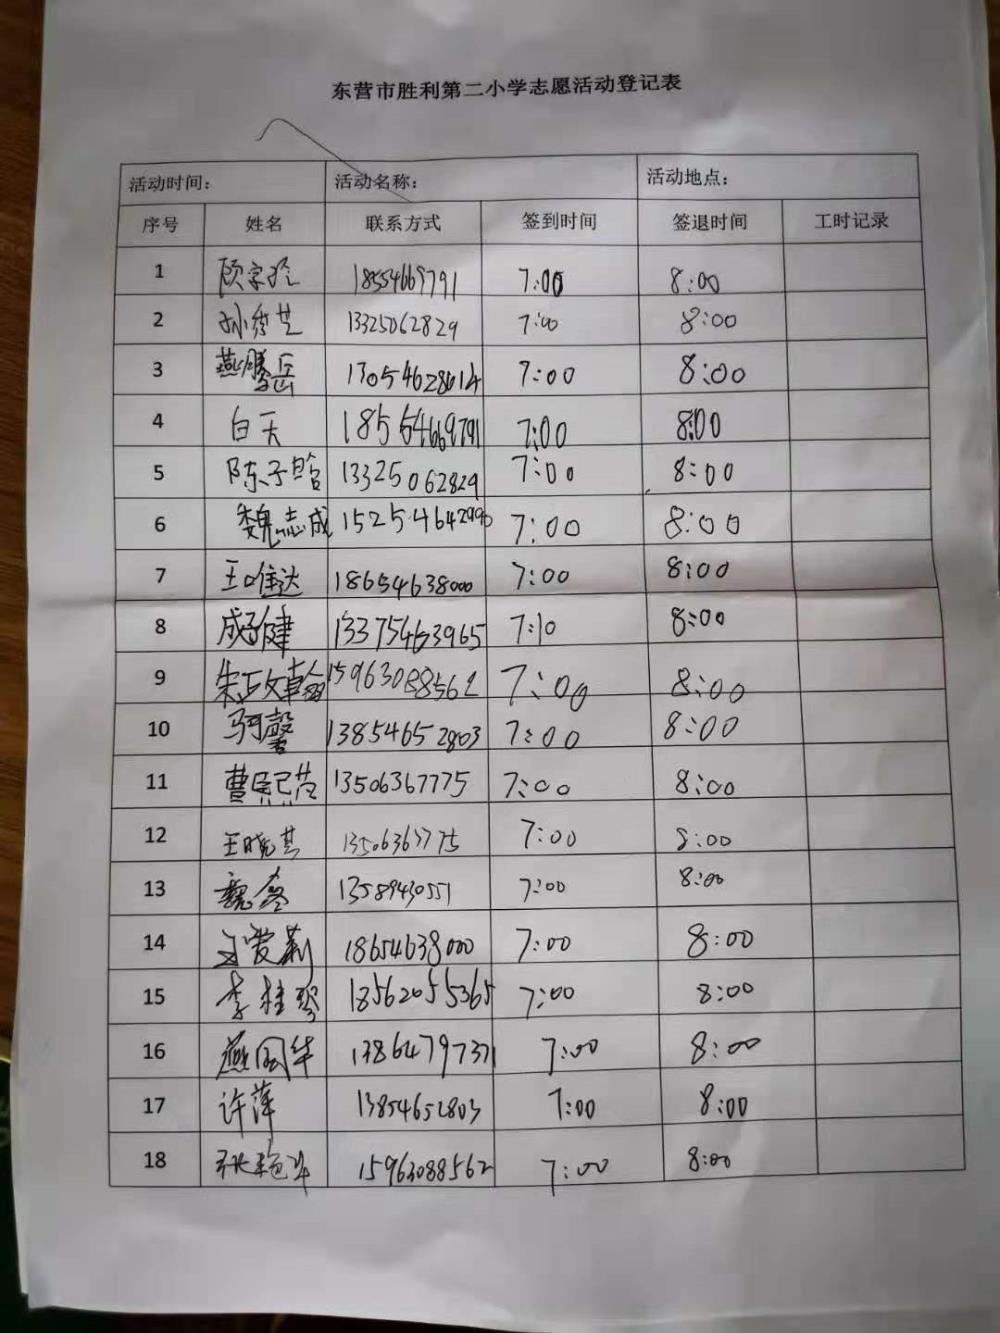 东营市胜利第二小学志愿活动登记表
活动时间： 活动名称： 活动地点：
序号 姓名 联系方式 签到时间 签退时间 工时记录
1 顾宗玲 18554669791 7:00 8:00
2 孙俊芝 13325062829 7:00 8:00
3 燕腾岳 13054628614 7:00 8:00
4 白天 18554669791 7:00 8:00
5 陈子晗 13325062829 7:00 8:00
6 魏志成 15254642990 7:00 8:00
7 王唯达 18654638000 7:00 8:00
8 成子健 13375463965 7:10 8:00
9 15963088562 7:00 8:00
10 13854652803 7:00 8:00
11 13506367775 7:00 8:00
12 王晓 13506367775 7:00 8:00
13 魏 13589430551 7:00 8:00
14 18654638000 7:00 8:00
15 李桂琴 18562055365 7:00 8:00
16 燕国华 7:00 8:00
17 许萍 13854652803 7:00 8:00
18 15963088562 7:00 8:00